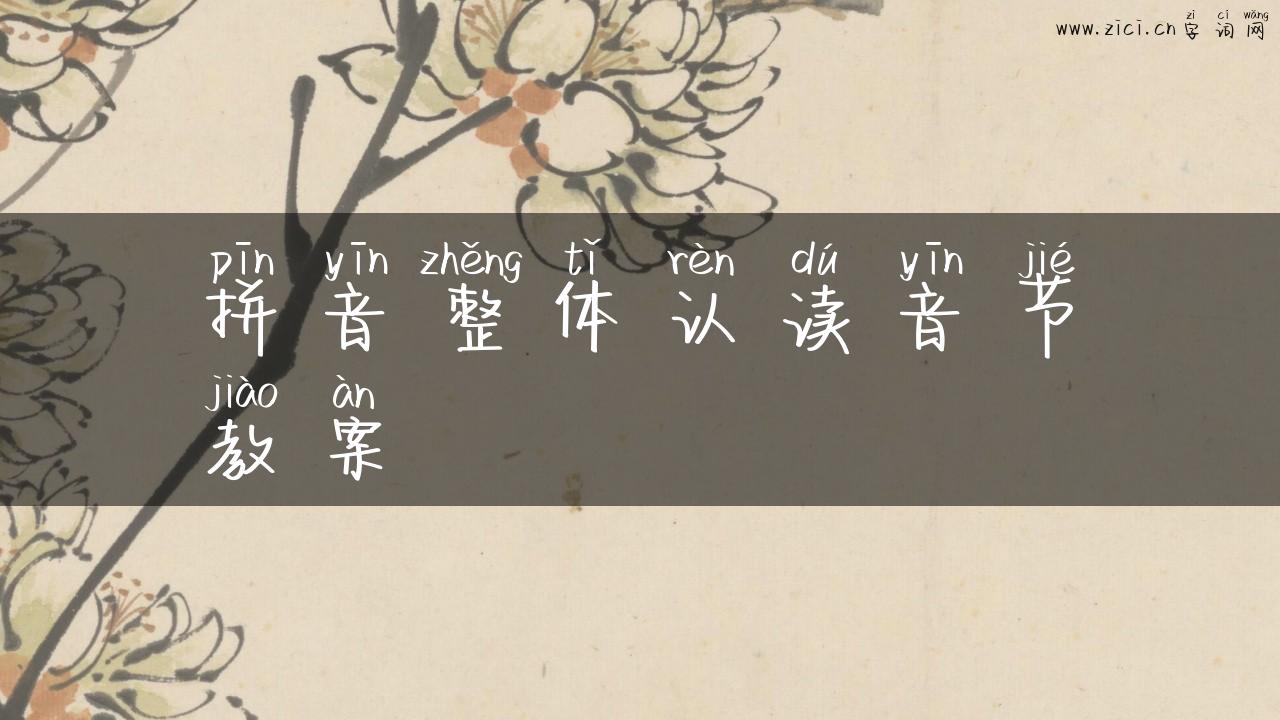 zì cí wǎng
www.zici.cn 字词网
pīn yīn zhěng tǐ rèn dú yīn jié
拼音整体认读音节
jiào àn
教案